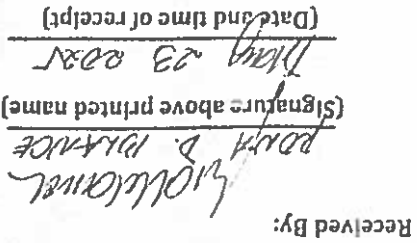 Received By:
D.
(Signature above printed name)
May 23 2025
(Date and time of receipt)